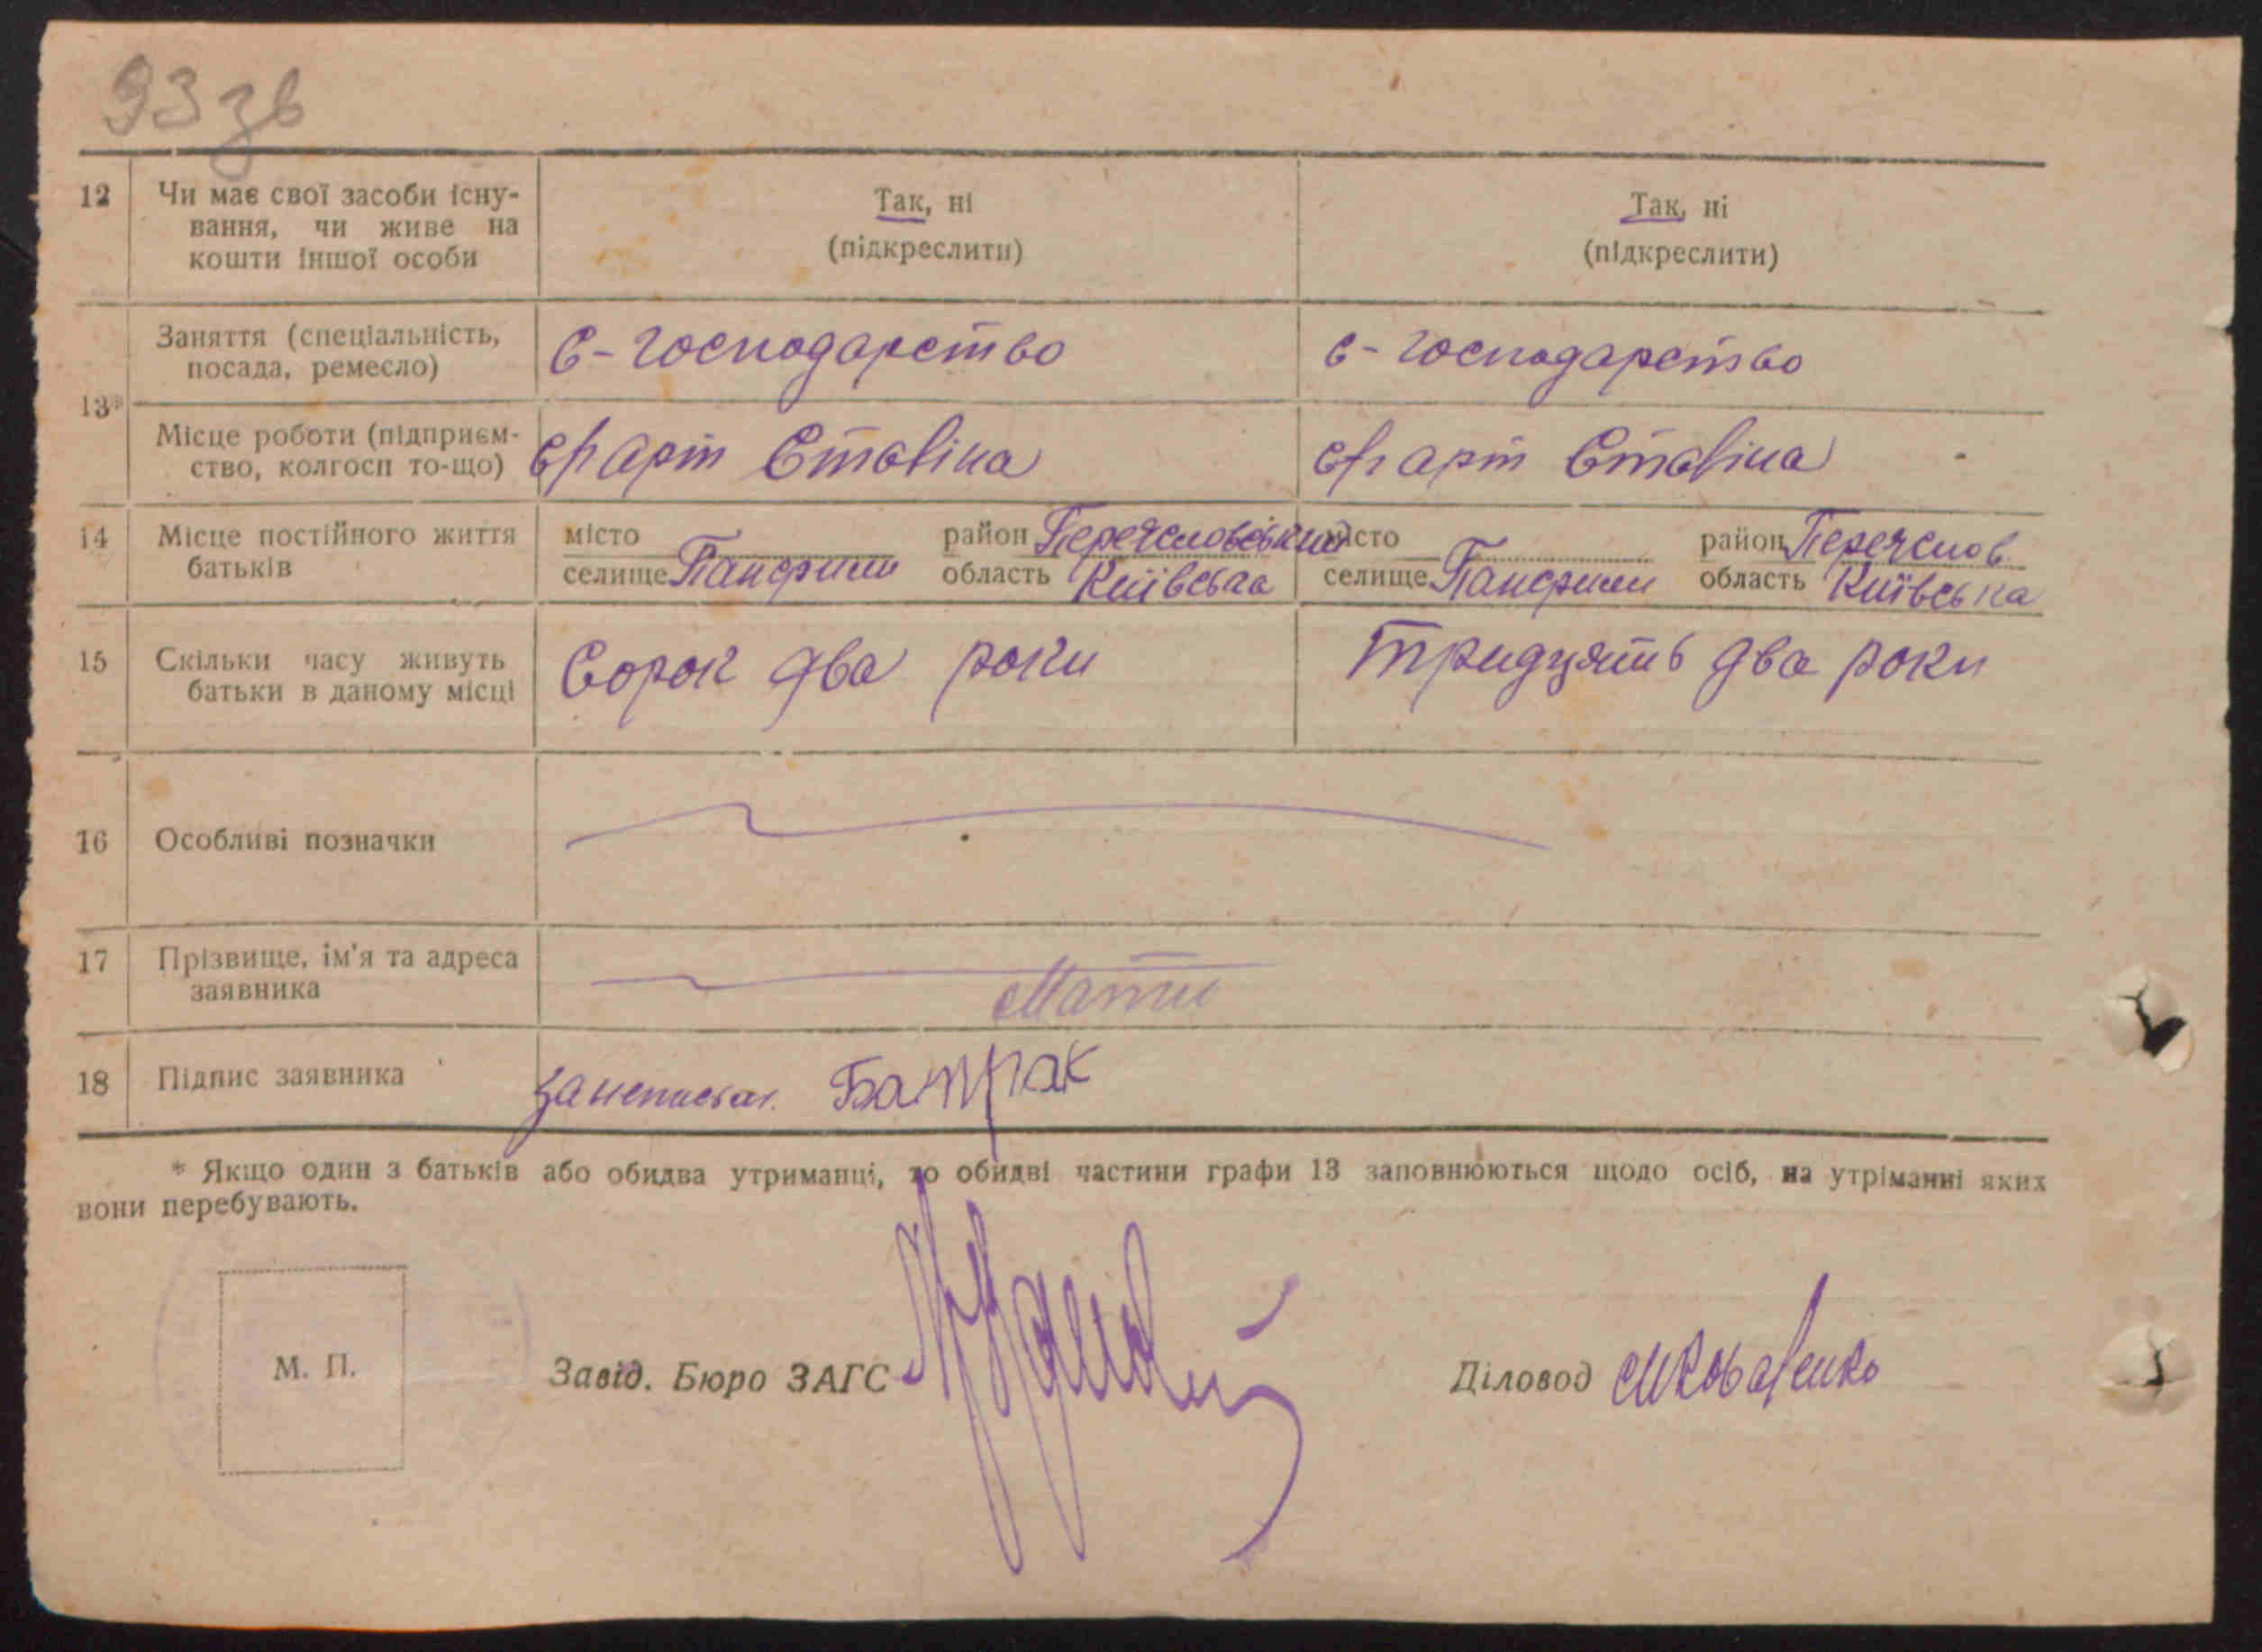 93 зв
12 Чи має свої засоби існу- Так, ні Так, ні
вання, чи живе на (підкреслити) (підкреслити)
кошти іншої особи
Заняття (спеціальність, С-господарство С-господарство
посада, ремесло)
13*
Місце роботи (підприєм- арт Сталіна арт Сталіна
ство, колгосп то-що)
14 Місце постійного життя місто район місто район Переяслов
батьків селище Панфили область Київська селище Панфили область Київська
15 Скільки часу живуть Сорок два роки Тридцять два роки
батьки в даному місці
16 Особливі позначки
17 Прізвище, ім'я та адреса Мати
заявника
18 Підпис заявника Батрак
* Якщо один з батьків або обидва утриманці, то обидві частини графи 13 заповнюються щодо осіб, на утріманні яких
вони перебувають.
М. П.
Завід. Бюро ЗАГС Діловод МКоваленко